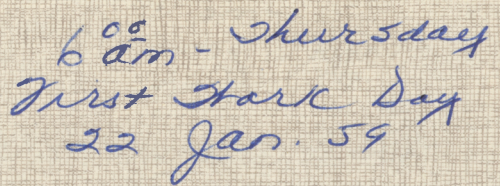 6⁰⁰ am - Thursday
First Work Day
22 Jan. 59